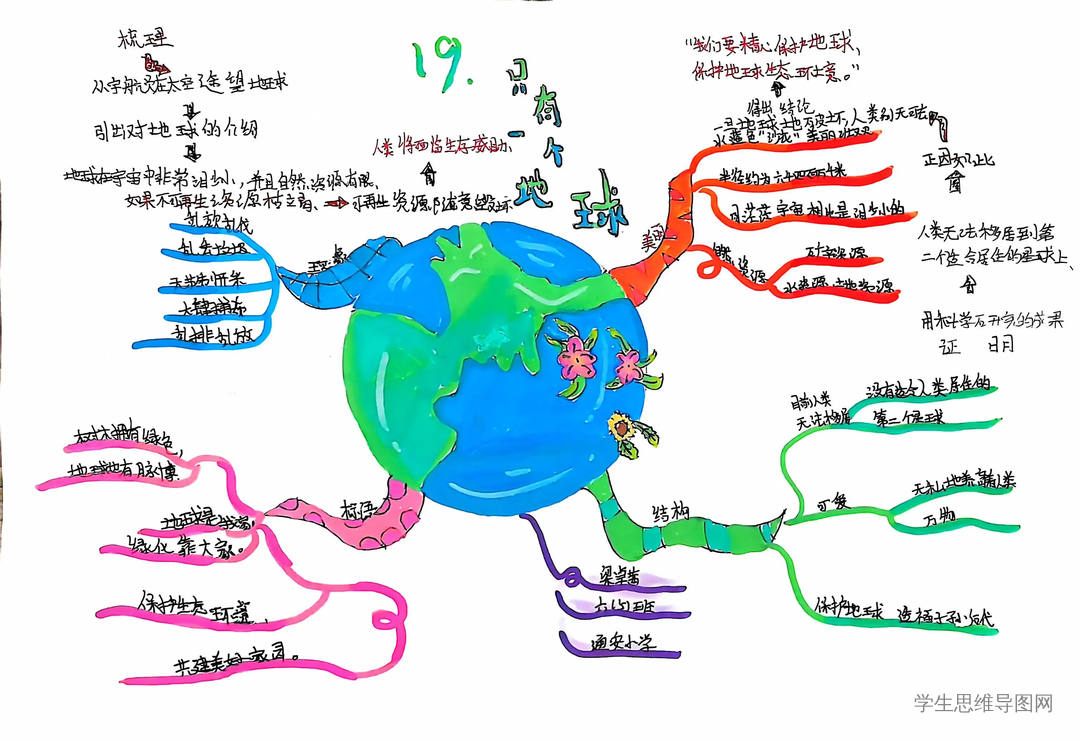 19.只有一个地球
梳理
从宇航员在太空遥望地球
引出对地球的介绍
地球在宇宙中非常渺小，并且自然资源有限、
如果不可再生资源枯竭、可再生资源
人类将面临生存威胁、
"我们要精心保护地球、
保护地球生态环境。"
得出结论
一旦地球被破坏，人类别无
正因如此
人类无法移居到第
二个适合居住的星球上、
用科学研究的成果
证明
水蓝色
美丽
半径约为六千四百千米
同茫茫宇宙相比是渺小的
资源
矿产资源
水资源
乱砍乱伐
乱丢垃圾
大肆捕杀
乱排乱放
标语
树木拥有绿色，
地球也有脉搏
地球是我家，
绿化靠大家。
保护生态环境，
共建美好家园。
结构
目前人类
无法移居
没有适合人类居住的
第二个星球
可爱
无私地养育人类
万物
保护地球 造福子孙后代
通安小学
学生思维导图网